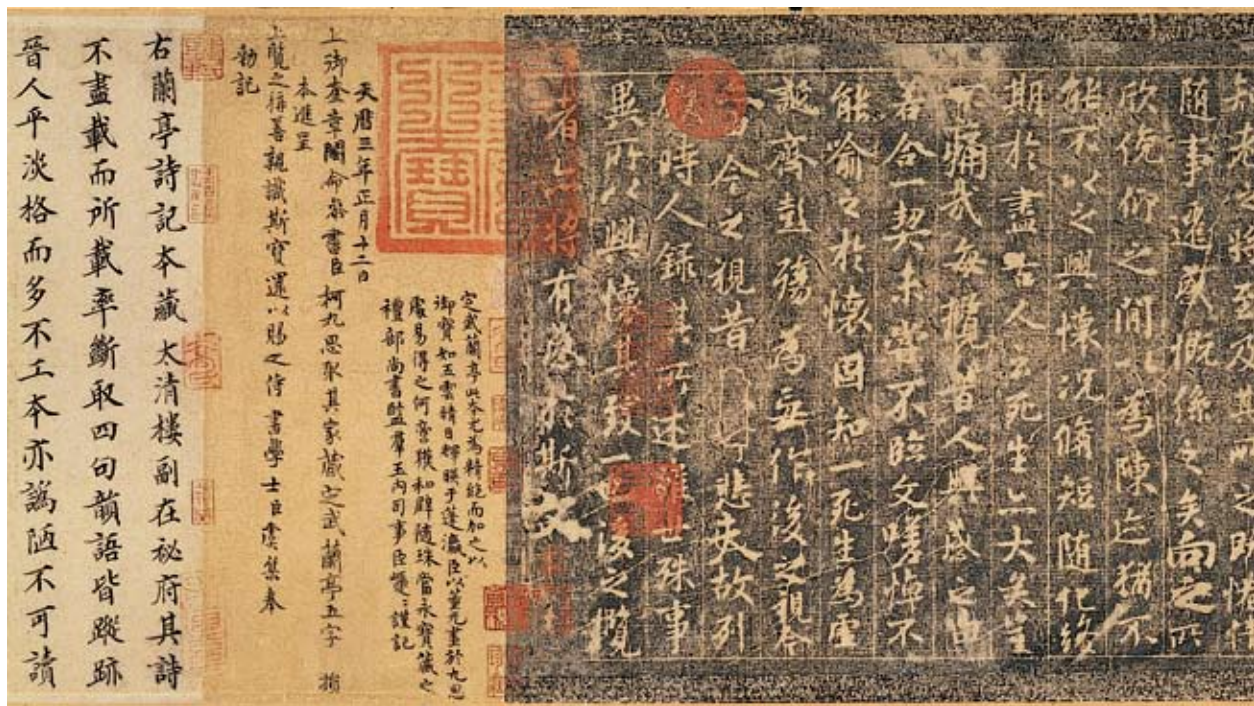 知老之將至及其所之既惓情
隨事遷感慨係之矣向之所
欣俛仰之閒以為陳迹猶不
能不以之興懷況脩短隨化終
期於盡古人云死生亦大矣豈
不痛哉每攬昔人興感之由
若合一契未嘗不臨文嗟悼不
能喻之於懷固知一死生為虛
誕齊彭殤為妄作後之視今
今之視昔 悲夫故列
時人錄其所述雖世殊事
異所以興懷其致一也後之攬
者亦將有感於斯文
定武蘭亭此本尤為精絕而加之以
御寶如五雲晴日輝映于蓬瀛臣以董元畫於九思
處易得之何啻獲和璧隨珠當永寶藏之
禮部尚書監羣玉內司事臣巙巙謹記
天曆三年正月十二日
上御奎章閣命參書臣柯九思取其家藏定武蘭亭五字損
本進呈
上覽之稱善親識斯寶還以賜之侍書學士臣虞集奉
勑記
右蘭亭詩記本藏太清樓副在秘府其詩
不盡載而所載率斷取四句韻語皆蹤跡
晉人平淡格而多不工本亦譌陋不可讀